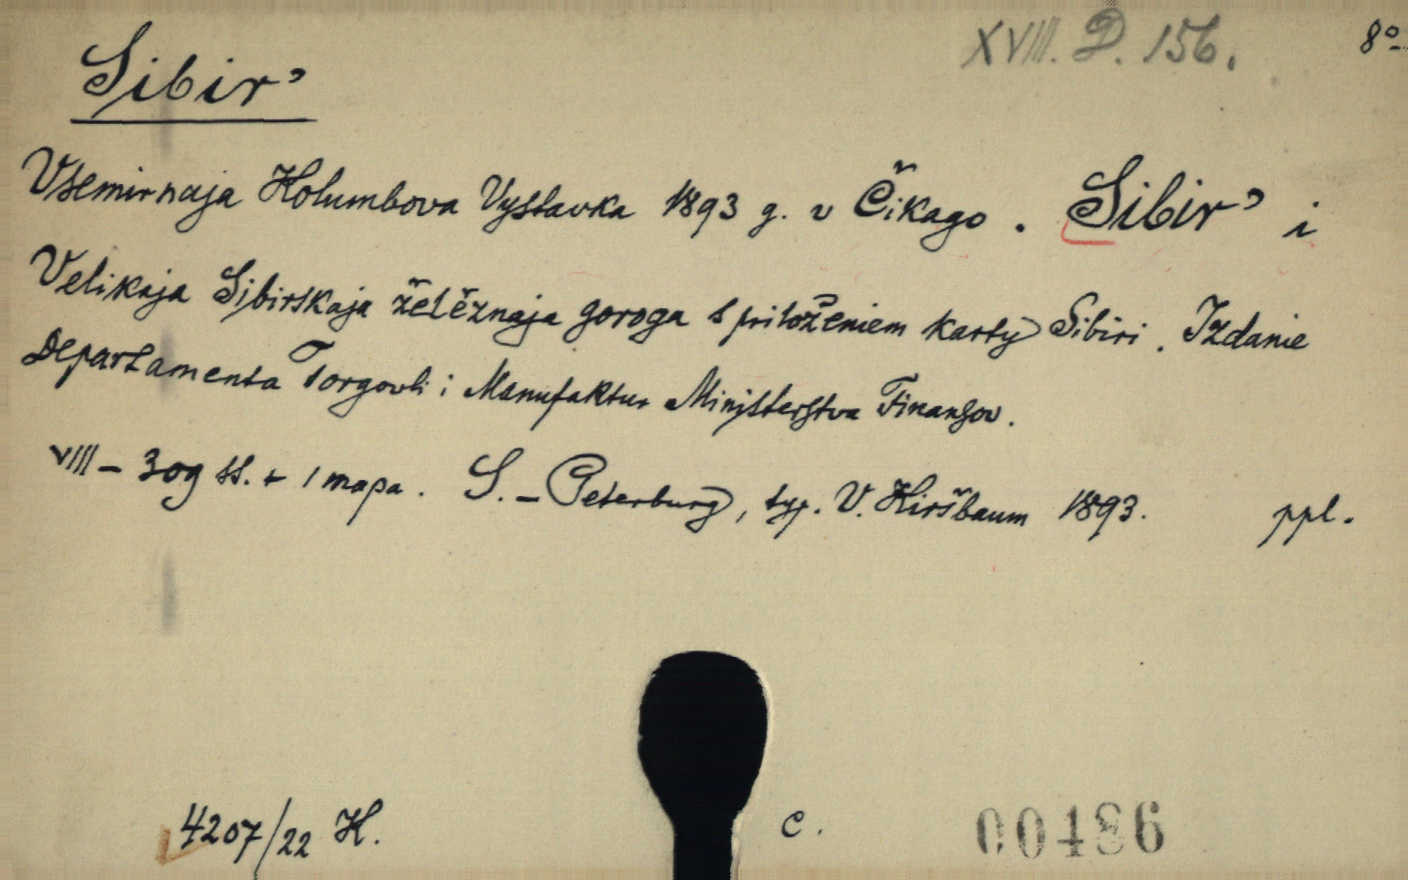 XVIII. D. 156. 8º
Sibir'
Vsemirnaja Kolumbova Vystavka 1893 g. v Čikago. Sibir' i
Velikaja Sibirskaja želěznaja doroga s priloženiem karty Sibiri. Izdanie
Departamenta Torgovli i Manufaktur Ministerstva Finansov.
VIII – 309 ss. + 1 mapa. S.-Peterburg, typ. V. Kiršbaum 1893. ppl.
4207/22 K. c. 00486